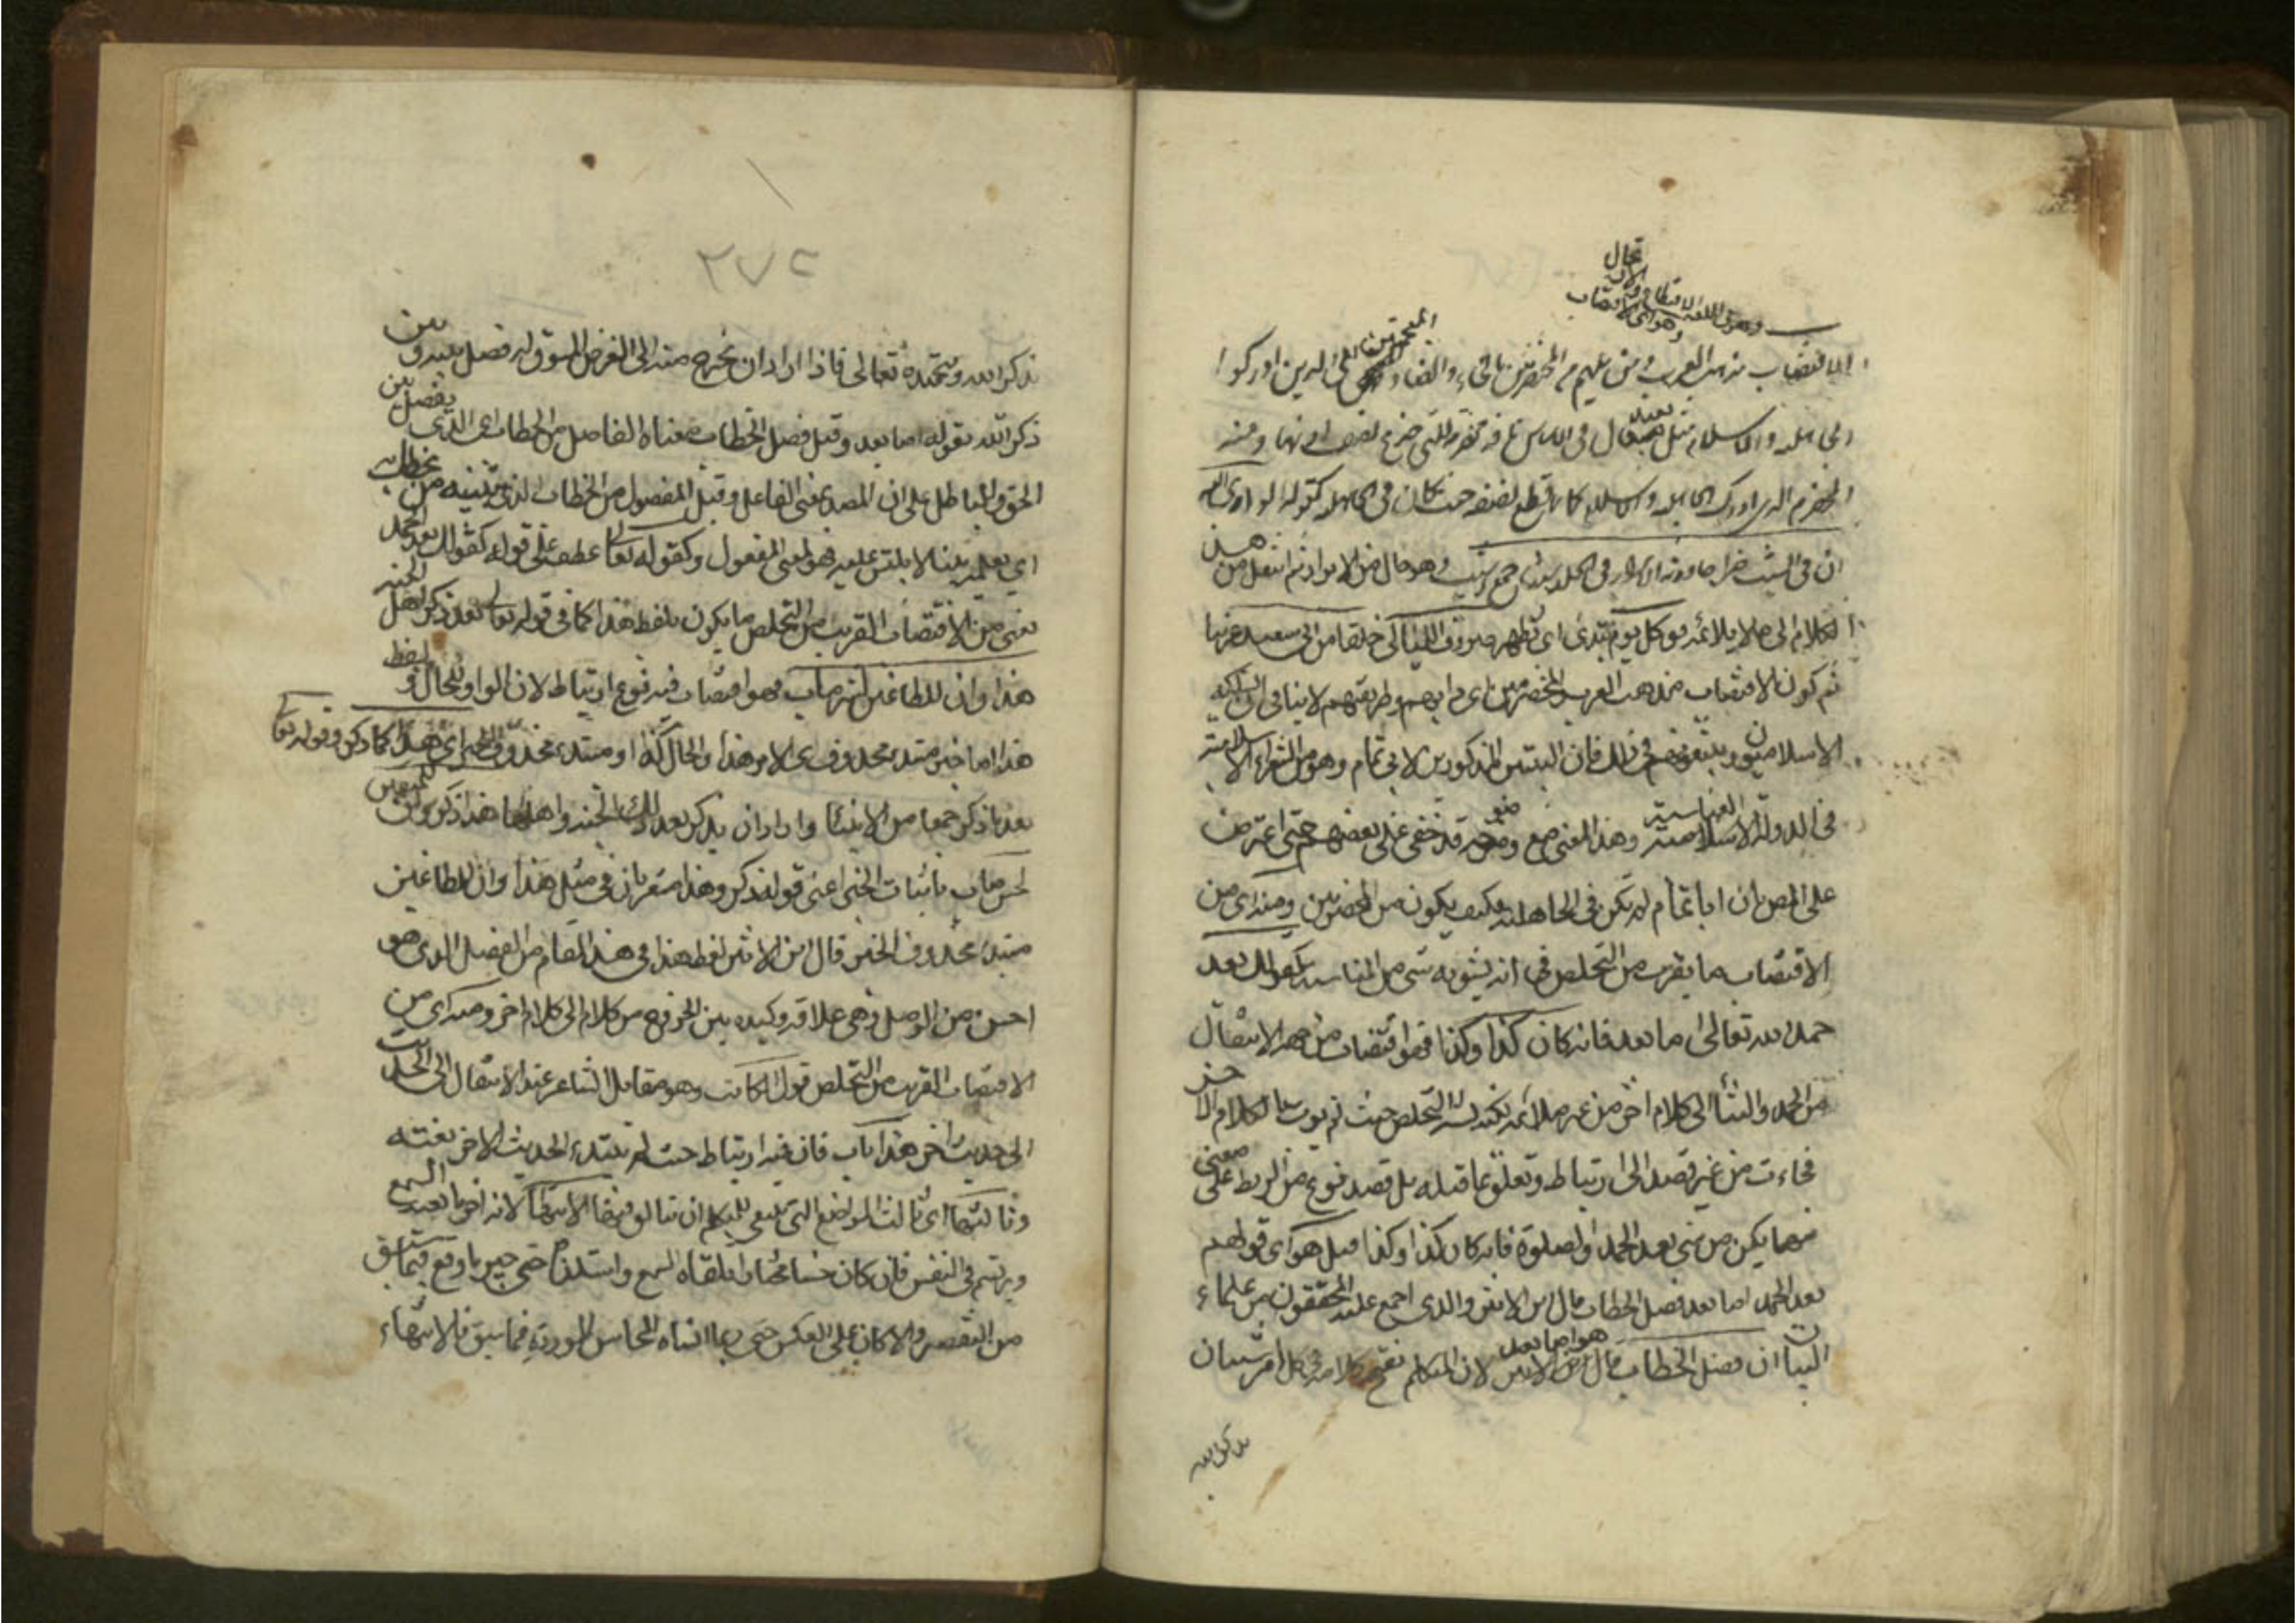 وهو في اللغة الاقتطاع والارتجال
وهو اي الاقتضاب
الاقتضاب مذهب العرب ومن يليهم من المخضرمين بالخاء والضاد المعجمتين اي الذين ادركوا
الجاهلية والاسلام مثل لبيد قال في الاساس ناقة مخضرمة التي جذع نصف اذنها ومنه
المخضرم الذي ادرك الجاهلية والاسلام كانما قطع نصفه حيث كان في الجاهلية كقوله لو رأى الله
ان في الشيب خيرا جاورته الابرار في الخلد شيبا جمع اشيب وهو حال من الابرار ثم انتقل من هذا
الكلام الى ما لا يلائمه فقال كل يوم تبدى اي تظهر صروف الليالى خلقا من ابى سعيد غريبا
ثم كون الاقتضاب مذهب العرب والمخضرمين اى دابهم وطريقتهم لا ينافى ان يسلكه
الاسلاميون ويتبعونهم في ذلك فان البيتين المذكورين لابى تمام وهو من الشعراء الاسلامية
في الدولة العباسية وهذا المعنى مع وضوحه قد خفى على بعضهم حتى اعترض
على المص بان ابا تمام لم يكن في الجاهلية فكيف يكون من المخضرمين ومنه اى من
الاقتضاب ما يقرب من التخلص في انه يشوبه شى من المناسبة كقولك بعد
حمد الله تعالى اما بعد فانه كان كذا وكذا فهو اقتضاب من جهة الانتقال
من الحمد والثناء الى كلام اخر من غير ملائمة لكنه يشبه التخلص حيث لم يوت بالكلام الاخر
فجاءت من غير قصد الى ارتباط وتعلق بما قبله بل قصد نوع من الربط على معنى
مهما يكن من شى بعد الحمد والصلوة فانه كان كذا وكذا قيل هو اى قولهم
بعد الحمد اما بعد فصل الخطاب قال ابن الاثير والذى اجمع عليه المحققون من علماء
البيان ان فصل الخطاب هو اما بعد لان المتكلم يفتتح كلامه في كل امر ذى شان
بذكر الله
٢٧٢
بذكر الله وتحميده تعالى فاذا اراد ان يخرج منه الى الغرض المسوق له فصل بينه وبين
ذكر الله بقوله اما بعد وقيل فصل الخطاب معناه الفاصل من الخطاب اى الذى يفصل بين
الحق والباطل على ان المصدر بمعنى الفاعل وقيل المفصول من الخطاب الذى يتبينه من يخاطب به
اى يعلمه بينا لا يلتبس عليه فهو بمعنى المفعول وكقوله تعالى عطف على قوله كقولك بعد حمد الله
يعنى من الاقتضاب القريب من التخلص ما يكون بلفظ هذا كما في قوله تعالى بعد ذكر اهل الجنة
هذا وان للطاغين لشر مآب فهو اقتضاب فيه نوع ارتباط لان الواو للحال ولفظ
هذا اما خبر مبتدء محذوف اى الامر هذا والحال كذا او مبتدء محذوف الخبر اى هذا كما ذكر وقوله تعالى
بعد ما ذكر جمعا من الانبياء واراد ان يذكر بعد ذلك الجنة واهلها هذا ذكر وان للمتقين
لحسن مآب باثبات الخبر اعنى قوله ذكر وهذا مشعر بان في مثل هذا وان للطاغين
مبتدء محذوف الخبر قال ابن الاثير لفظ هذا في هذا المقام من الفصل الذى هو
احسن من الوصل وهى علاقة وكيدة بين الخروج من كلام الى كلام اخر ومنه اى من
الاقتضاب القريب من التخلص قول الكاتب وهو مقابل الشاعر عند الانتقال من حديث
الى حديث اخر هذا باب فان فيه ارتباط حيث لم يبتدء الحديث الاخر بغتة
وثالثها اى ثالث المواضع التى ينبغى للمتكلم ان يتانق فيها الانتهاء لانه اخر ما يعيه السمع
ويرتسم في النفس فان كان حسنا مختارا تلقاه السمع واستلذه حتى جبر ما وقع فيما سبق
من التقصير والا كان على العكس حتى ربما انساه المحاسن الموردة فيما سبق فالانتهاء